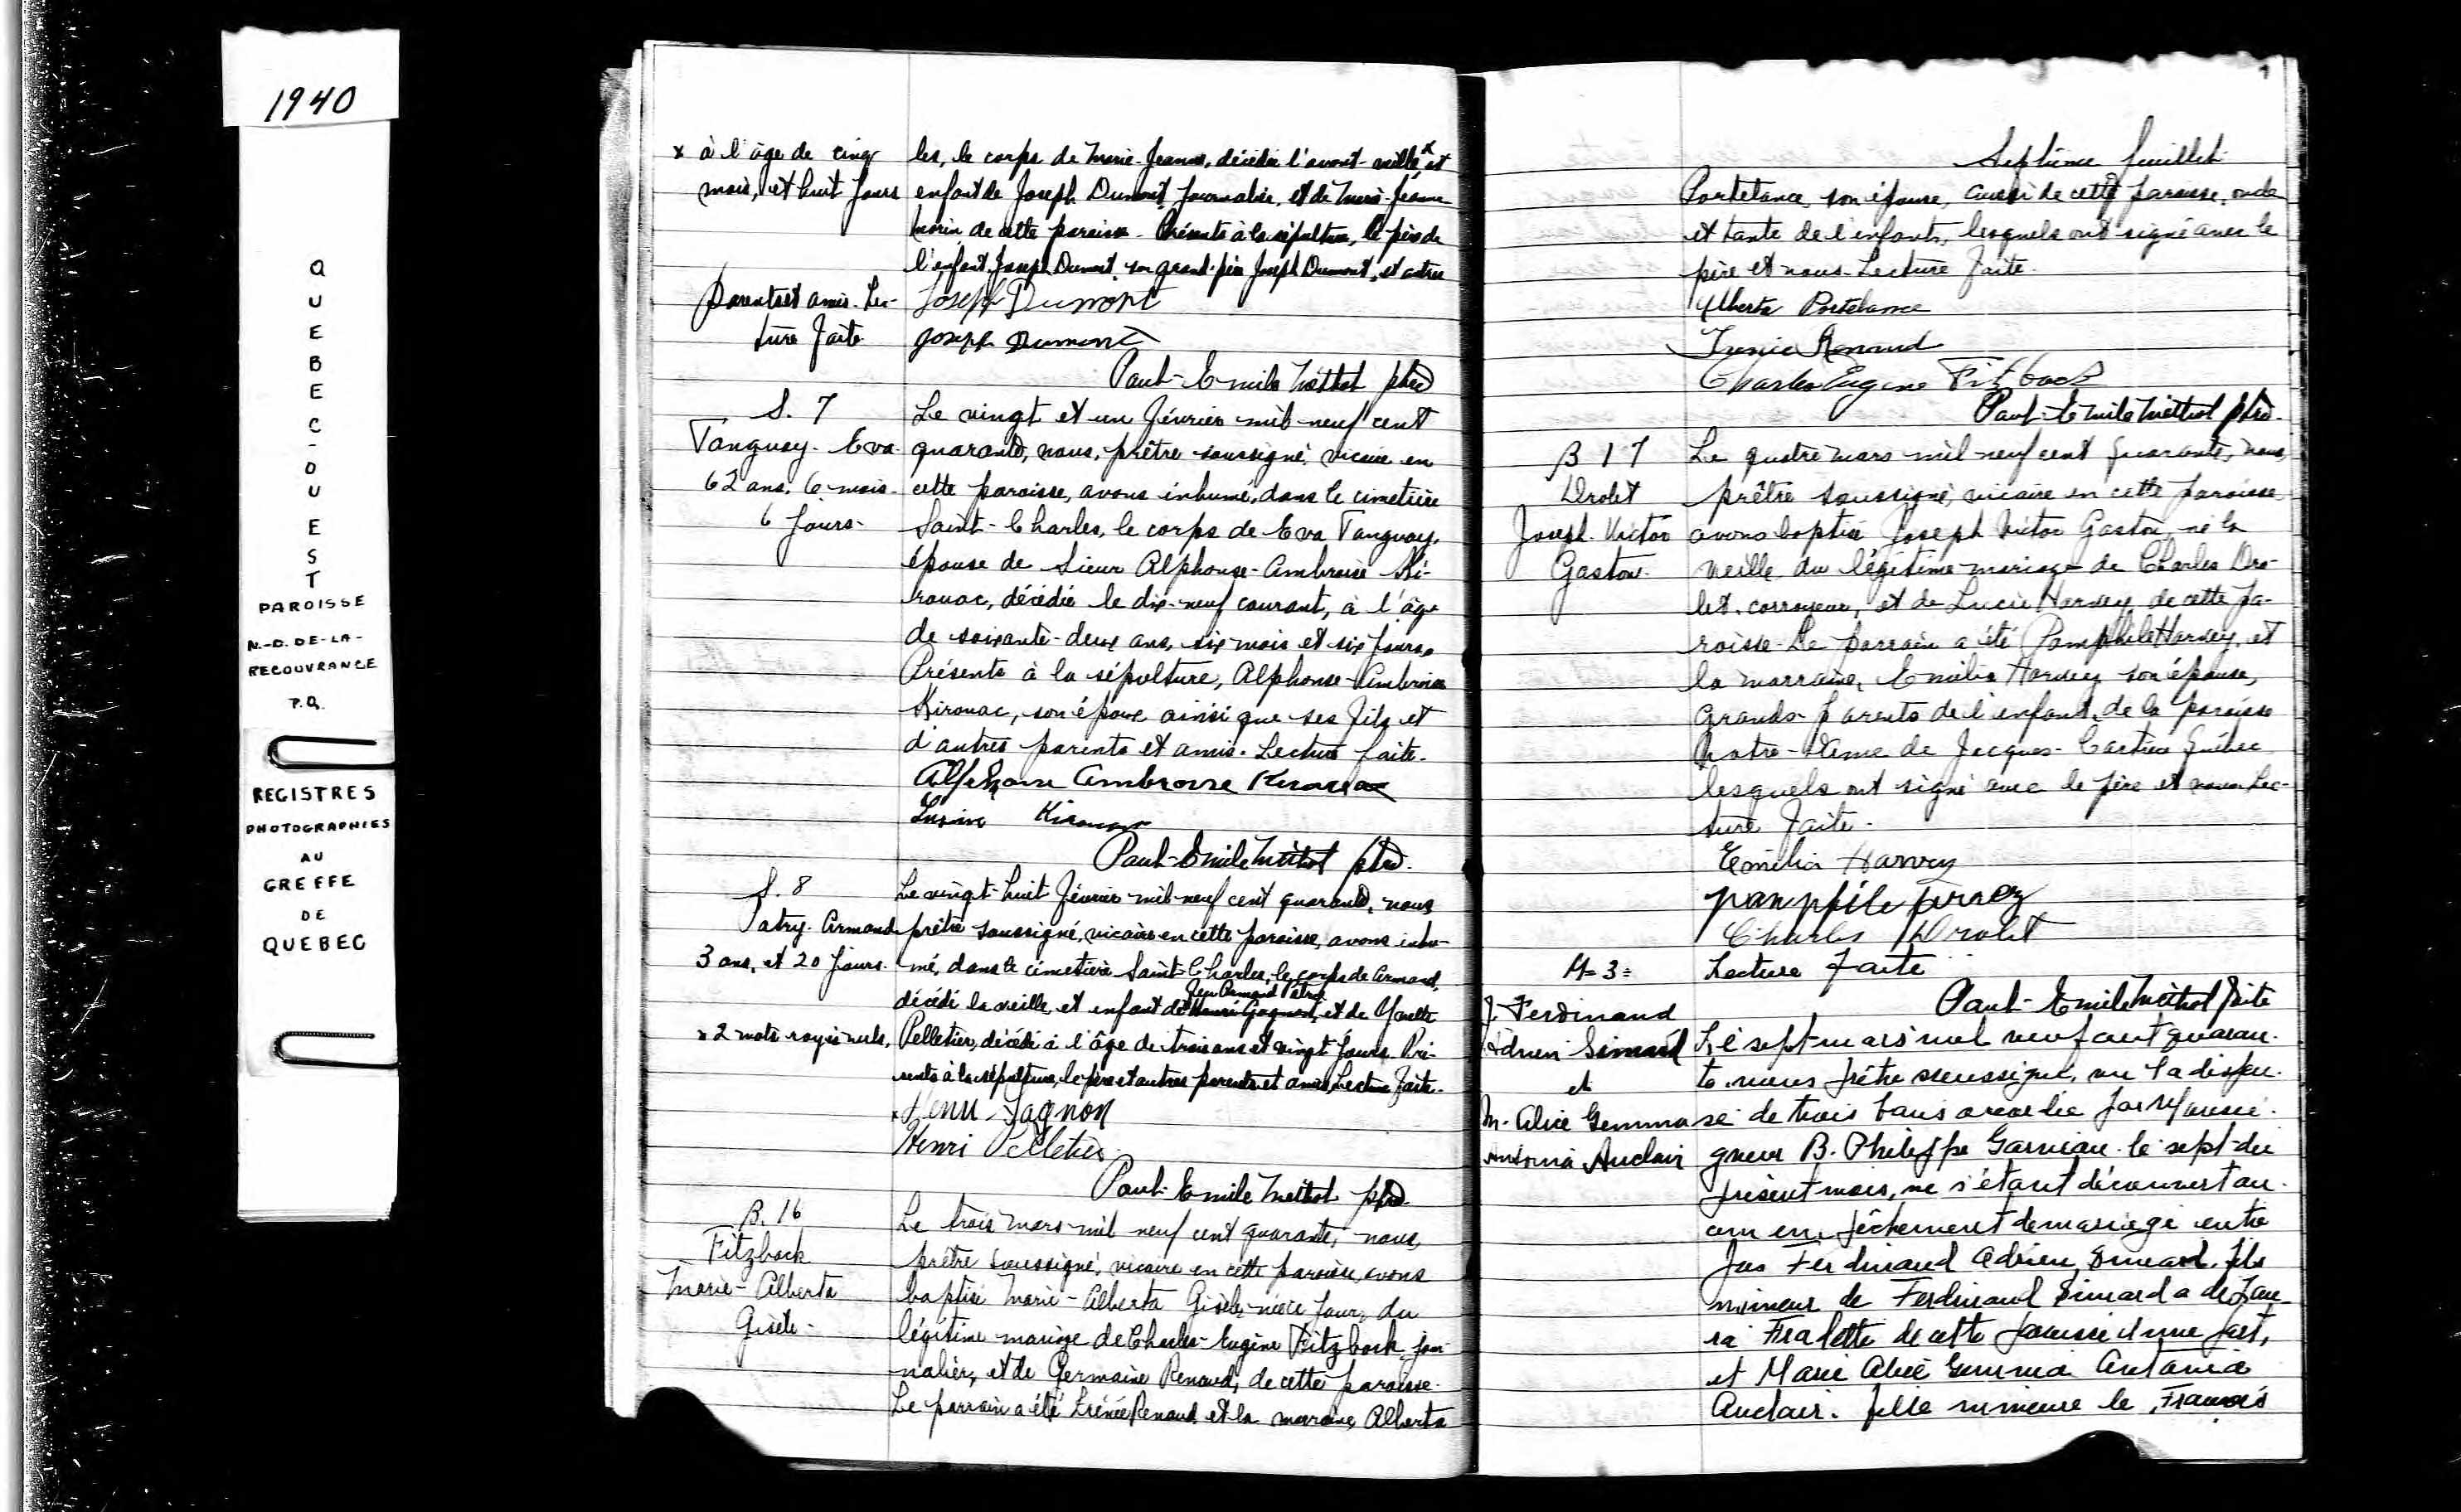 1940
Q
U
E
B
E
C
-
O
U
E
S
T
PAROISSE
N.-D. DE-LA-
RECOUVRANCE
P.Q.
REGISTRES
PHOTOGRAPHIES
AU
GREFFE
DE
QUEBEC
x à l'âge de cinq
mois, et huit jours
les, le corps de Marie-Jeanne, décédée l'avant-veille x et
enfant de Joseph Dumont, journalier, et de Marie-Jeanne
Morin de cette paroisse. Présents à la sépulture, le père de
l'enfant, Joseph Dumont, son grand-père Joseph Dumont, et autres
parents et amis. Lec-
ture faite
Joseph Dumont
Joseph Dumont
Paul-Emile Méthot ptre
S. 7
Tanguay. Eva
62 ans. 6 mois.
6 jours.
Le vingt et un février mil neuf cent
quarante, nous, prêtre soussigné, vicaire en
cette paroisse, avons inhumé, dans le cimetière
Saint-Charles, le corps de Eva Tanguay,
épouse de Sieur Alphonse-Ambroise Ki-
rouac, décédée le dix-neuf courant, à l'âge
de soixante-deux ans, six mois et six jours.
Présents à la sépulture, Alphonse-Ambroise
Kirouac, son époux ainsi que ses fils et
d'autres parents et amis. Lecture faite.
Alphonse Ambroise Kirouac
Kirouac
Paul-Emile Méthot ptre.
S. 8
Patry. Armand
3 ans, et 20 jours.
x 2 mots rayés nuls.
Le vingt-huit février mil neuf cent quarante, nous
prêtre soussigné, vicaire en cette paroisse, avons inhu-
mé, dans le cimetière Saint-Charles, le corps de Armand,
Armand Patry
décédé la veille, et enfant de Henri Gagnon, et de Yvette
Pelletier, décédé à l'âge de trois ans et vingt jours. Pré-
sents à la sépulture, le père et autres parents et amis, Lecture faite.
x Henri Gagnon
Henri Pelletier
Paul-Emile Méthot ptre
B. 16
Fitzback
Marie-Alberta
Gisèle-
Le trois mars mil neuf cent quarante, nous,
prêtre soussigné, vicaire en cette paroisse, avons
baptisé Marie-Alberta Gisèle, née ce jour, du
légitime mariage de Charles-Eugène Fitzback, jour-
nalier, et de Germaine Renaud, de cette paroisse.
Le parrain a été Irénée Renaud et la marraine, Alberta
Septième feuillet
Portelance, son épouse, aussi de cette paroisse, oncle
et tante de l'enfant, lesquels ont signé avec le
père et nous. Lecture faite.
Alberta Portelance
Irénée Renaud
Charles Eugène Fitzback
Paul-Emile Méthot ptre.
B 17
Drolet
Joseph. Victor
Gaston.
Le quatre mars mil neuf cent quarante, nous,
prêtre soussigné, vicaire en cette paroisse,
avons baptisé Joseph Victor Gaston, né la
veille du légitime mariage de Charles Dro-
let, corroyeur, et de Lucie Harvey, de cette pa-
roisse. Le parrain a été Pamphile Harvey, et
la marraine, Emilia Harvey son épouse,
grands-parents de l'enfant, de la paroisse
Notre-Dame de Jacques-Cartier Québec
lesquels ont signé avec le père et nous. Lec-
ture faite.
Emilia Harvey
Charles Drolet
Lecture faite
Paul-Emile Méthot ptre
M= 3=
J. Ferdinand
Adrien Simard
et
M. Alice Gemma
Antonia Auclair
Le sept mars mil neuf cent quaran-
te nous prêtre soussigné, vu la dispen-
se de trois bans accordée par Monsei-
gneur B. Philippe Garneau le sept du
présent mois, ne s'étant découvert au-
cun empêchement de mariage entre
Jos Ferdinand Adrien Simard, fils
mineur de Ferdinand Simard & de Lau-
ra Fralette de cette paroisse d'une part,
et Marie Alice Gemma Antonia
Auclair, fille mineure de François